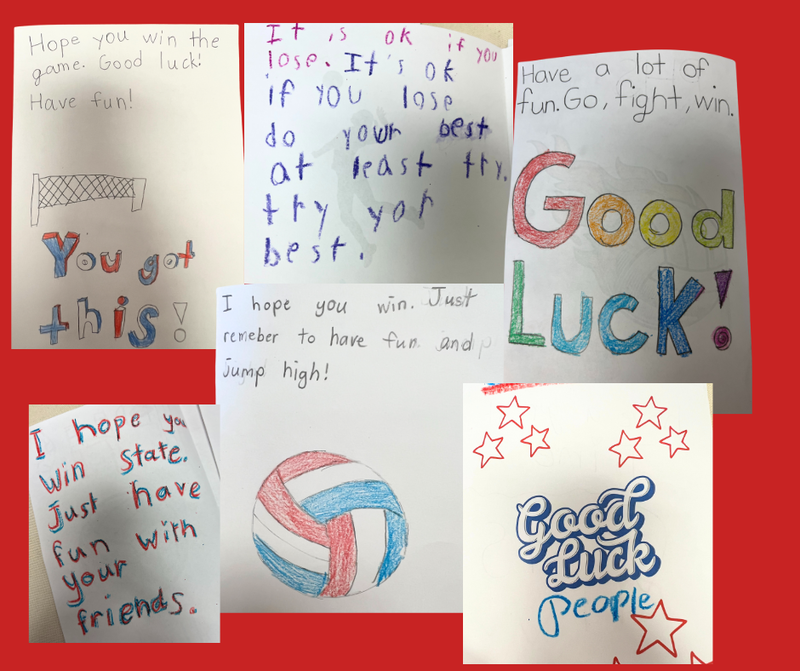 Hope you win the
game. Good luck!
Have fun!
You got
this!
It is ok if you
lose. It's ok
if you lose
do your best
at least try.
try yor
best.
Have a lot of
fun. Go, fight, win.
Good
Luck!
I hope you win. Just
remeber to have fun and
jump high!
I hope you
win state.
Just have
fun with
your
friends.
Good
Luck
People